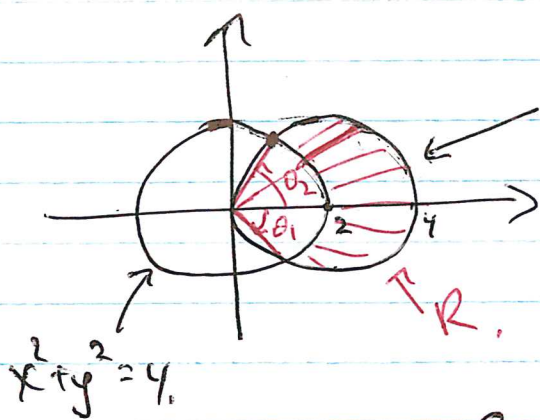 θ₂
θ₁
2
4
R.
x²+y²=4.